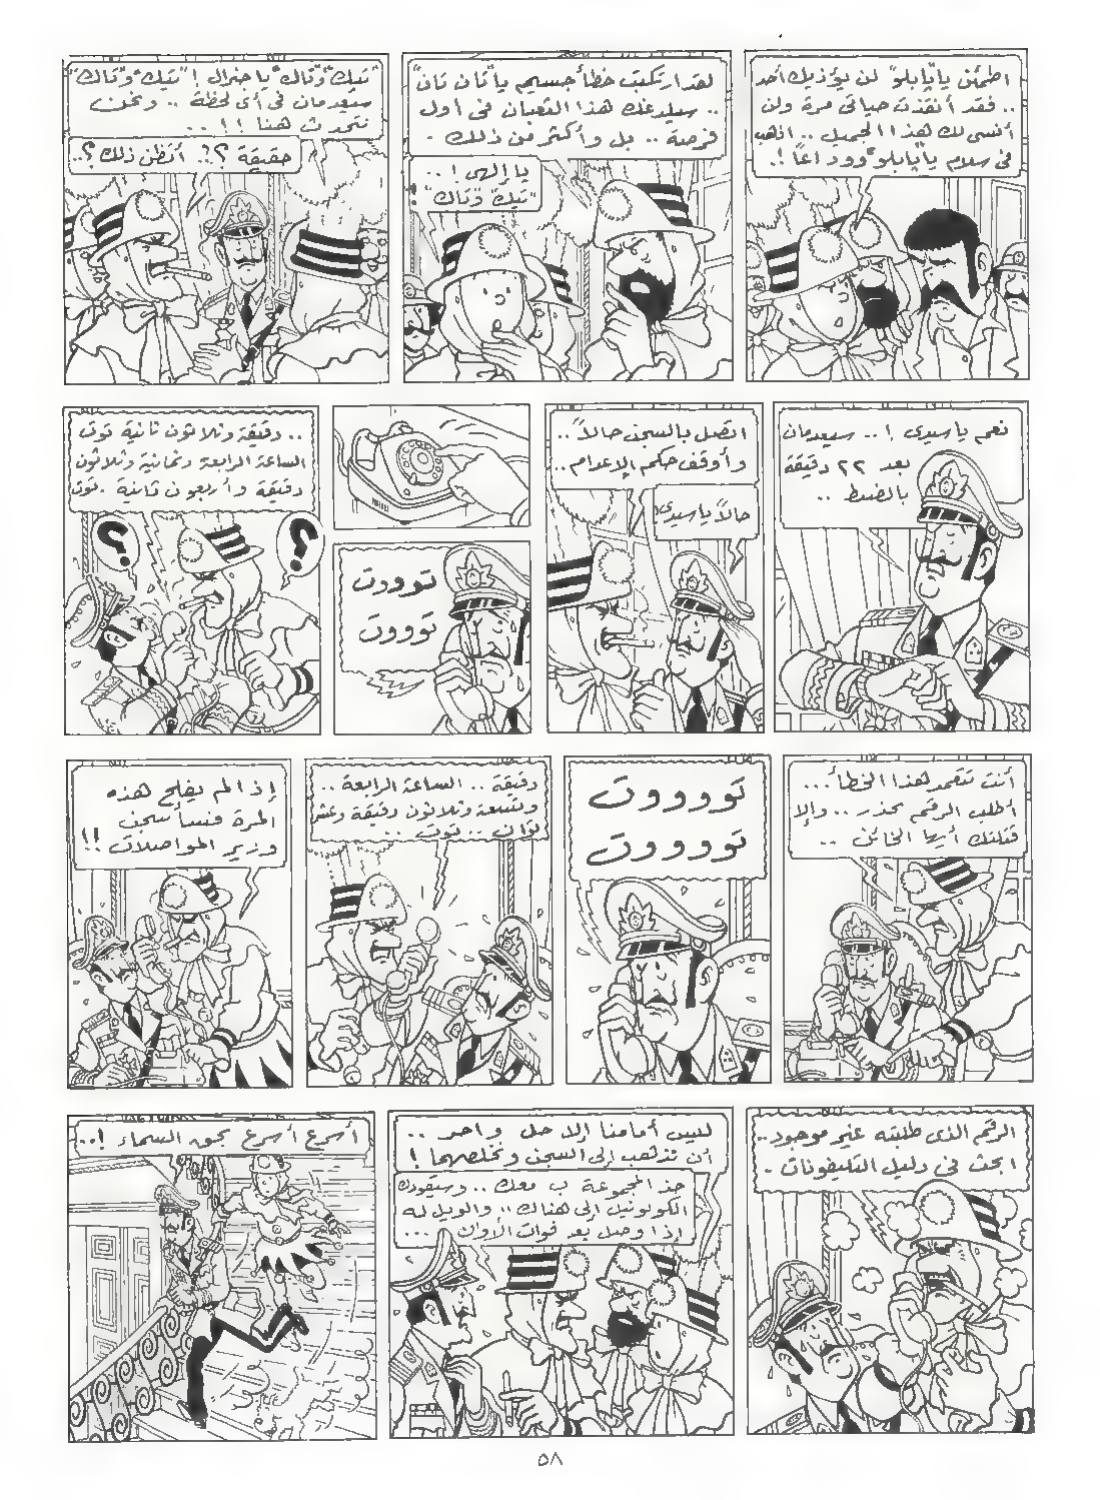 اطمئن يا "بابلو" لن يؤذيك أحد
.. فقد أنقذت حياتى مرة ولن
أنسى لك هذا الجميل .. اذهب
فى سلام يا "بابلو" ووداعاً !.
لقد ارتكبت خطأ جسيم يا "تان تان"
.. سيلدغك هذا الثعبان فى أول
فرصة .. بل وأكثر من ذلك .
يا إلهى ! ..
"تيك" و"تاك" !
"تيك" و"تاك" يا جنرال ! "تيك" و"تاك"
سيعدمان فى أى لحظة .. ونحن
نتحدث هنا ! ! ..
حقيقة ؟!. أتظن ذلك ؟..
نعم يا سيدى !.. سيعدمان
بعد ٢٢ دقيقة
بالضبط ..
اتصل بالسجن حالاً ..
وأوقف حكم الإعدام ..
حالاً يا سيدى !
توووت
توووت
.. دقيقة وثلاثون ثانية توت
الساعة الرابعة وثمانية وثلاثون
دقيقة وأربعون ثانية . توت
أنت تتعمد هذا الخطأ ...
أطلب الرقم بحذر .. وإلا
قتلتك أيها الخائن ..
تووووت
تووووت
دقيقة .. الساعة الرابعة ..
وتسعة وثلاثون دقيقة وعشر
ثوان .. توت ..
إذا لم يفلح هذه
المرة فسأسجن
وزير المواصلات !!
الرقم الذى طلبته غير موجود ..
ابحث فى دليل التليفونات .
ليس أمامنا إلا حل واحد ..
أن نذهب إلى السجن ونخلصهما !
خذ المجموعة ب معك .. وسيقودك
الكولونيل إلى هناك .. والويل له
إذا وصل بعد فوات الأوان ...
أسرع أسرع بحق السماء !..
٥٨